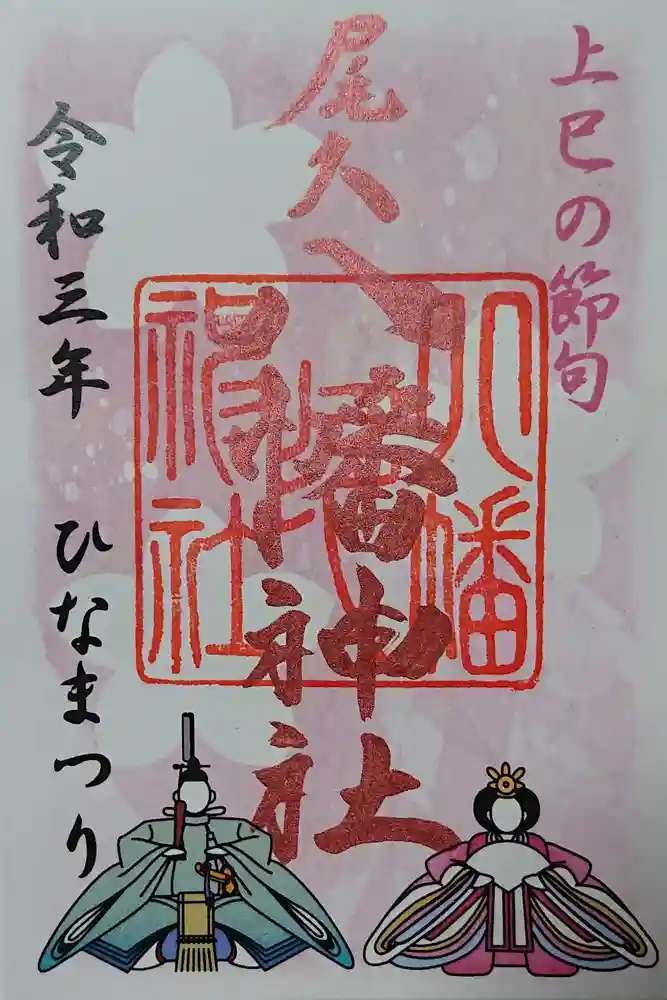 上巳の節句
尾久八幡神社
八幡
令和三年 ひなまつり